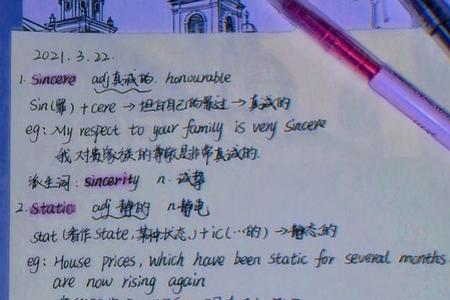 2021.3.22.
1. Sincere adj 真诚的. honourable
Sin(罪)+cere → 坦白自己的罪过 → 真诚的
eg: My respect to your family is very sincere
我对贵家族的尊敬是非常真诚的.
派生词: sincerity n. 诚挚
2. Static adj 静的 n.静电
stat(看作state, 某种状态,)+ic(…的) → 静态的
eg: House prices, which have been static for several months
are now rising again